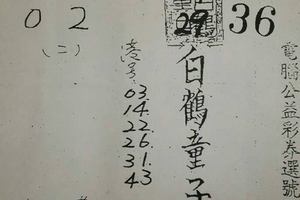 電腦公益彩券選號
36
29
白鶴童子
壹号
03
14
22
26
31
43
02
(二)